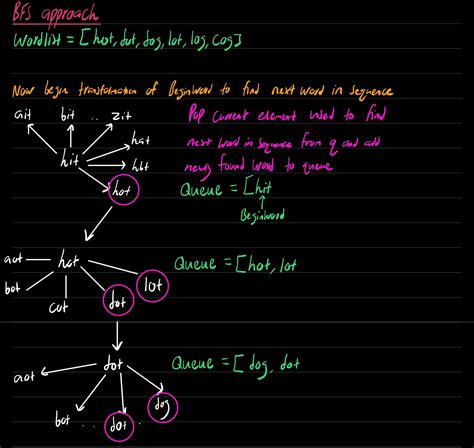 BFS approach
Wordlist = [hot, dot, dog, lot, log, cog]
Now begin transformation of BeginWord to find next word in sequence
ait bit .. zit
Pop current element used to find
hat
next word in sequence from q and add
hit
hbt
newly found word to queue
hot
Queue = [hit
BeginWord
aot hot
Queue = [hot, lot
bot
cot
dot
lot
dot
Queue = [dog, dot
aot
bot .. dot.
dog